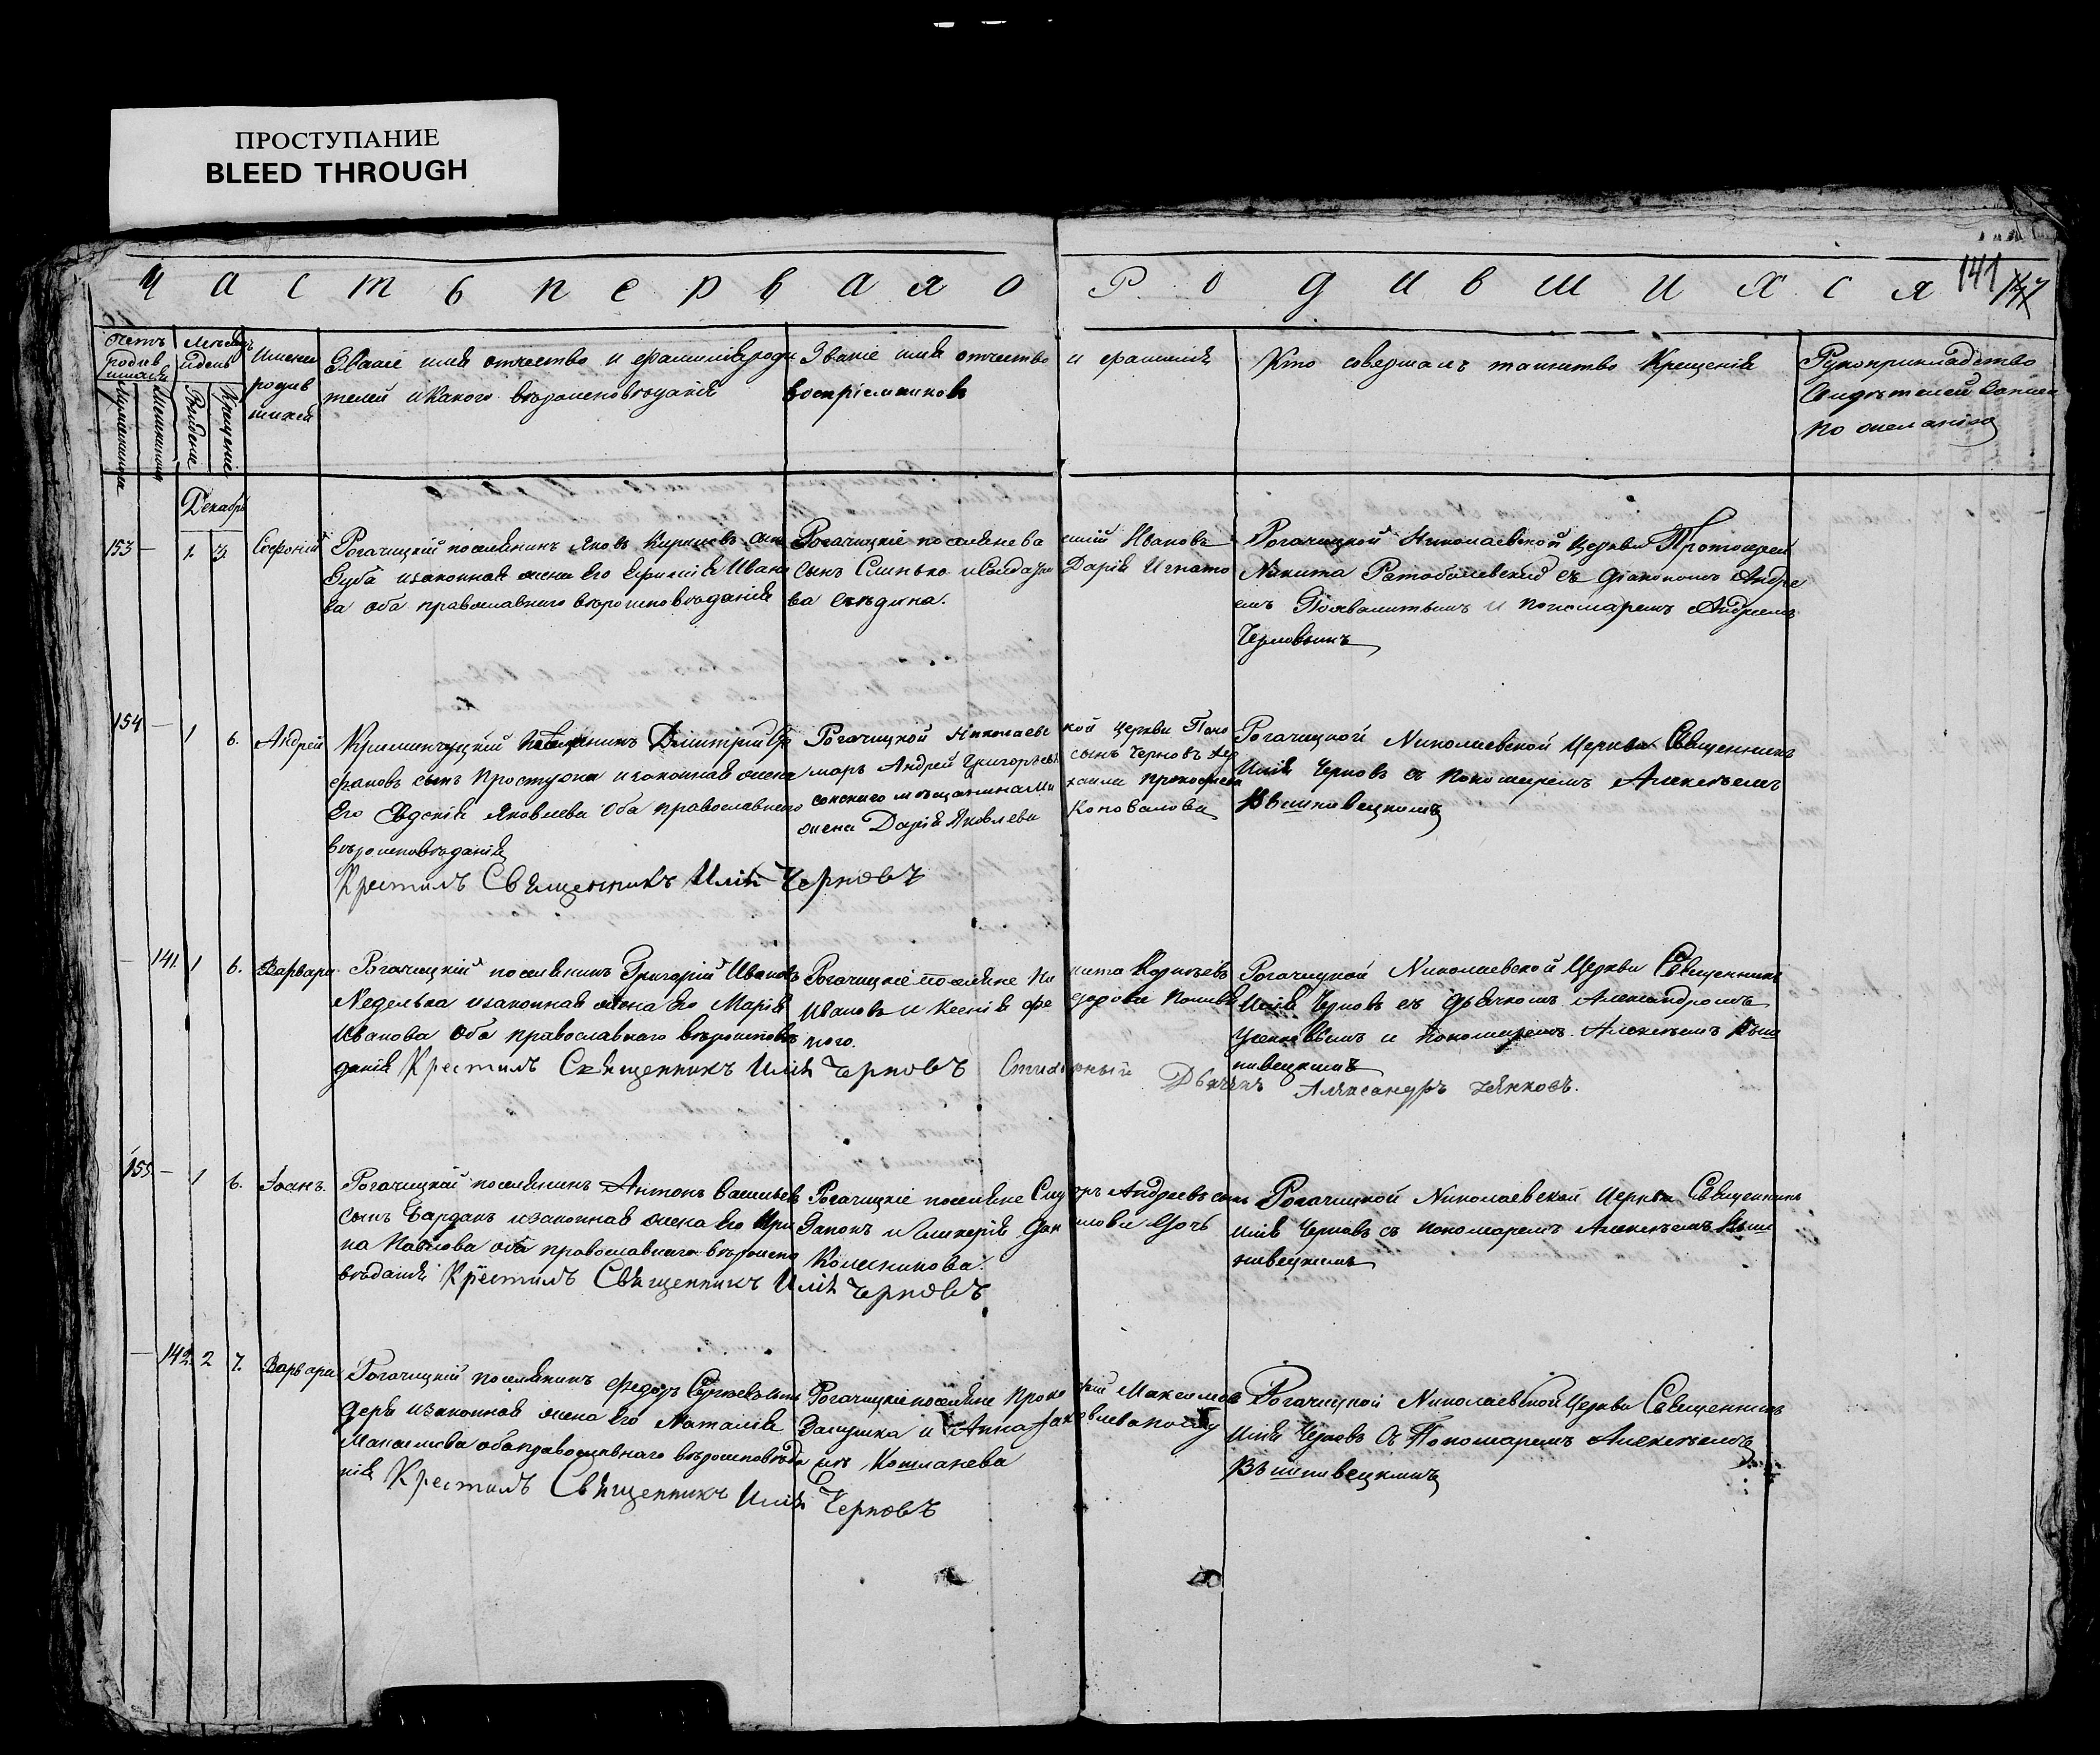 ПРОСТУПАНИЕ
BLEED THROUGH
Часть перваяо Родившихся 141
Счетъ родив шихся
Мѣсяцъ и день
Имена родив шихся
Званіе имя отчество и фамилія роди
телей и какого вѣроисповѣданія
Званіе имя отчество и фамилія
воспріемниковъ
Кто совершалъ таинство Крещенія
Рукоприкладство
Свидѣтелей записи
по желанію
Рожденіе
Крещеніе
Декабрь
153 — 1 3 Софроній
Рогачицкій поселянинъ Яковъ
Дуба и законная жена его Ефимія Ивано
ва оба православнаго вѣроисповѣданія
Рогачицкіе поселяне Ва силій Ивановъ
сынъ Слинько и Солда Дарія Игнато
ва
Рогачицкой Николаевской Церкви Протоіерей
Никита съ діакономъ Андре
емъ и пономаремъ Андреемъ
Черновымъ
154 — 1 6. Андрей
поселянинъ Димитрій
сынъ и законная жена
Его Евдокія Яковлева оба православнаго
вѣроисповѣданія
Крестилъ Священникъ Илія Черновъ
Рогачицкой Николаевс кой Церкви Поно
марь Андрей Григорьевъ сынъ Черновъ Хер
сонскаго мѣщанина Ми хаила Прокофьева
жена Дарія Яковлева Коновалова
Рогачицкой Николаевской Церкви Священникъ
Илія Черновъ съ Пономаремъ Алексѣемъ
Вышневецкимъ
— 141 1 6. Варвара
Рогачицкій поселянинъ Григорій Ивановъ
Неделька и законная жена его Марія
Иванова Оба православнаго вѣроисповѣ
данія Крестилъ Священникъ Илія Черновъ
Рогачицкіе поселяне Ни кита Корнѣевъ
Ивановъ и Ксенія Фе дорова
Рогачицкой Николаевской Церкви Священникъ
Илія Черновъ съ дьячкомъ Александромъ
и Пономаремъ Алексѣемъ Выш
невецкимъ
Стихарный Дьячекъ Александръ
155 — 1 6. Іоанъ.
Рогачицкій поселянинъ Антонъ Васильевъ
сынъ Барданъ и законная жена его Ири
на Павлова оба православнаго вѣроиспо
вѣданія Крестилъ Священникъ Илія Черновъ
Рогачицкіе поселяне Сид оръ Андреевъ сынъ
и Гликерія Дан илова дочь
Колесникова.
Рогачицкой Николаевской Церкви Священникъ
Илія Черновъ съ пономаремъ Алексѣемъ Выш
невецкимъ
— 142. 2 7. Варвара
Рогачицкій поселянинъ Федоръ Сергѣевъ сынъ
и законная жена его Наталія
Максимова оба православнаго вѣроисповѣда
нія Крестилъ Священникъ Илія Черновъ
Рогачицкіе поселяне Проко фій Максимовъ
и Анна Яковлева
Рогачицкой Николаевской Церкви Священникъ
Илія Черновъ Съ Пономаремъ Алексѣемъ
Вышневецкимъ